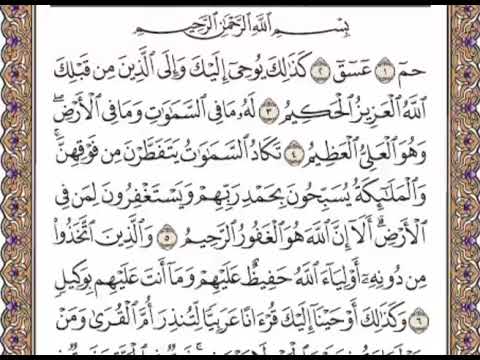 بِسْمِ ٱللَّهِ ٱلرَّحْمَٰنِ ٱلرَّحِيمِ
حمٓ ۝١ عٓسٓقٓ ۝٢ كَذَٰلِكَ يُوحِىٓ إِلَيْكَ وَإِلَى ٱلَّذِينَ مِن قَبْلِكَ
ٱللَّهُ ٱلْعَزِيزُ ٱلْحَكِيمُ ۝٣ لَهُۥ مَا فِى ٱلسَّمَٰوَٰتِ وَمَا فِى ٱلْأَرْضِ ۖ
وَهُوَ ٱلْعَلِىُّ ٱلْعَظِيمُ ۝٤ تَكَادُ ٱلسَّمَٰوَٰتُ يَتَفَطَّرْنَ مِن فَوْقِهِنَّ ۚ
وَٱلْمَلَٰٓئِكَةُ يُسَبِّحُونَ بِحَمْدِ رَبِّهِمْ وَيَسْتَغْفِرُونَ لِمَن فِى
ٱلْأَرْضِ ۗ أَلَآ إِنَّ ٱللَّهَ هُوَ ٱلْغَفُورُ ٱلرَّحِيمُ ۝٥ وَٱلَّذِينَ ٱتَّخَذُوا۟
مِن دُونِهِۦٓ أَوْلِيَآءَ ٱللَّهُ حَفِيظٌ عَلَيْهِمْ وَمَآ أَنتَ عَلَيْهِم بِوَكِيلٍ
۝٦ وَكَذَٰلِكَ أَوْحَيْنَآ إِلَيْكَ قُرْءَانًا عَرَبِيًّا لِّتُنذِرَ أُمَّ ٱلْقُرَىٰ وَمَنْ